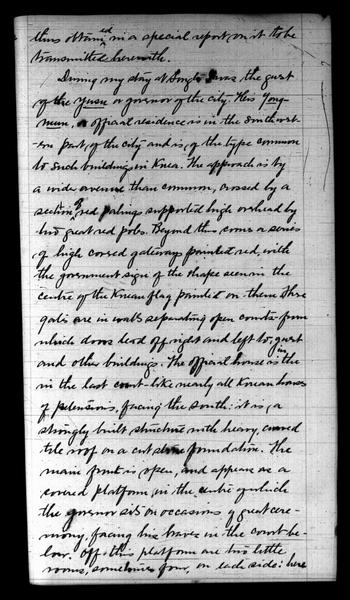 thus obtained in a special report, on it to be
transmitted herewith.
During my stay at Songto I was the guest
of the Yusu or govenor of the city. His Yong-
mun, or official residence is in the southwest-
ern part of the city and is, of the type common
to such buildings in Korea. The approach is by
a wide avenue than common, crossed by a
section of red palings supported high overhead by
two great red poles. Beyond this comes a series
of high covered gateways painted red, with
the government sign of the shape seen in the
centre of the Korean flag painted on them. These
gates are in walls separating open courts from
which doors lead off right and left to, guest
and other buildings. The official house is
in the last court like nearly all Korean houses
of pretensions, facing the south: it is, a
strongly built structure with heavy, curved
tile roof on a cut stone foundation. The
main front is open, and appears as a
covered platform in the centre of which
the govenor sits on occasions of great cere-
mony, facing his braves in the court be-
low. Off this platform are two little
rooms, sometimes four, on each side: here